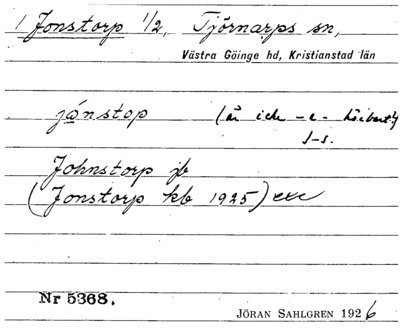 1 Jonstorp 1/2, Tjörnarps sn,
Västra Göinge hd, Kristianstad län
jónstop (är icke -e-
J-s.
Johnstorp jb
(Jonstorp kb 1925) exc
Nr 5368.
JÖRAN SAHLGREN 1926